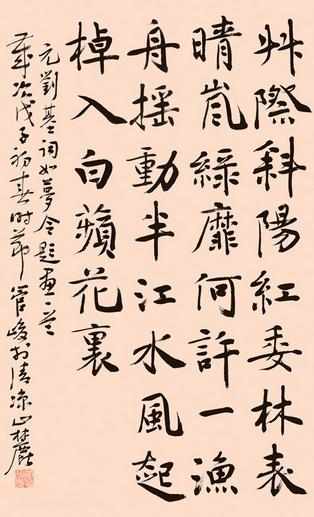 艸際斜陽紅委林表
晴嵐綠靡何許一漁
舟搖動半江水風起
棹入白蘋花裏
元劉基詞如夢令題畫
歲次戊子初春時節管峻於清涼山麓